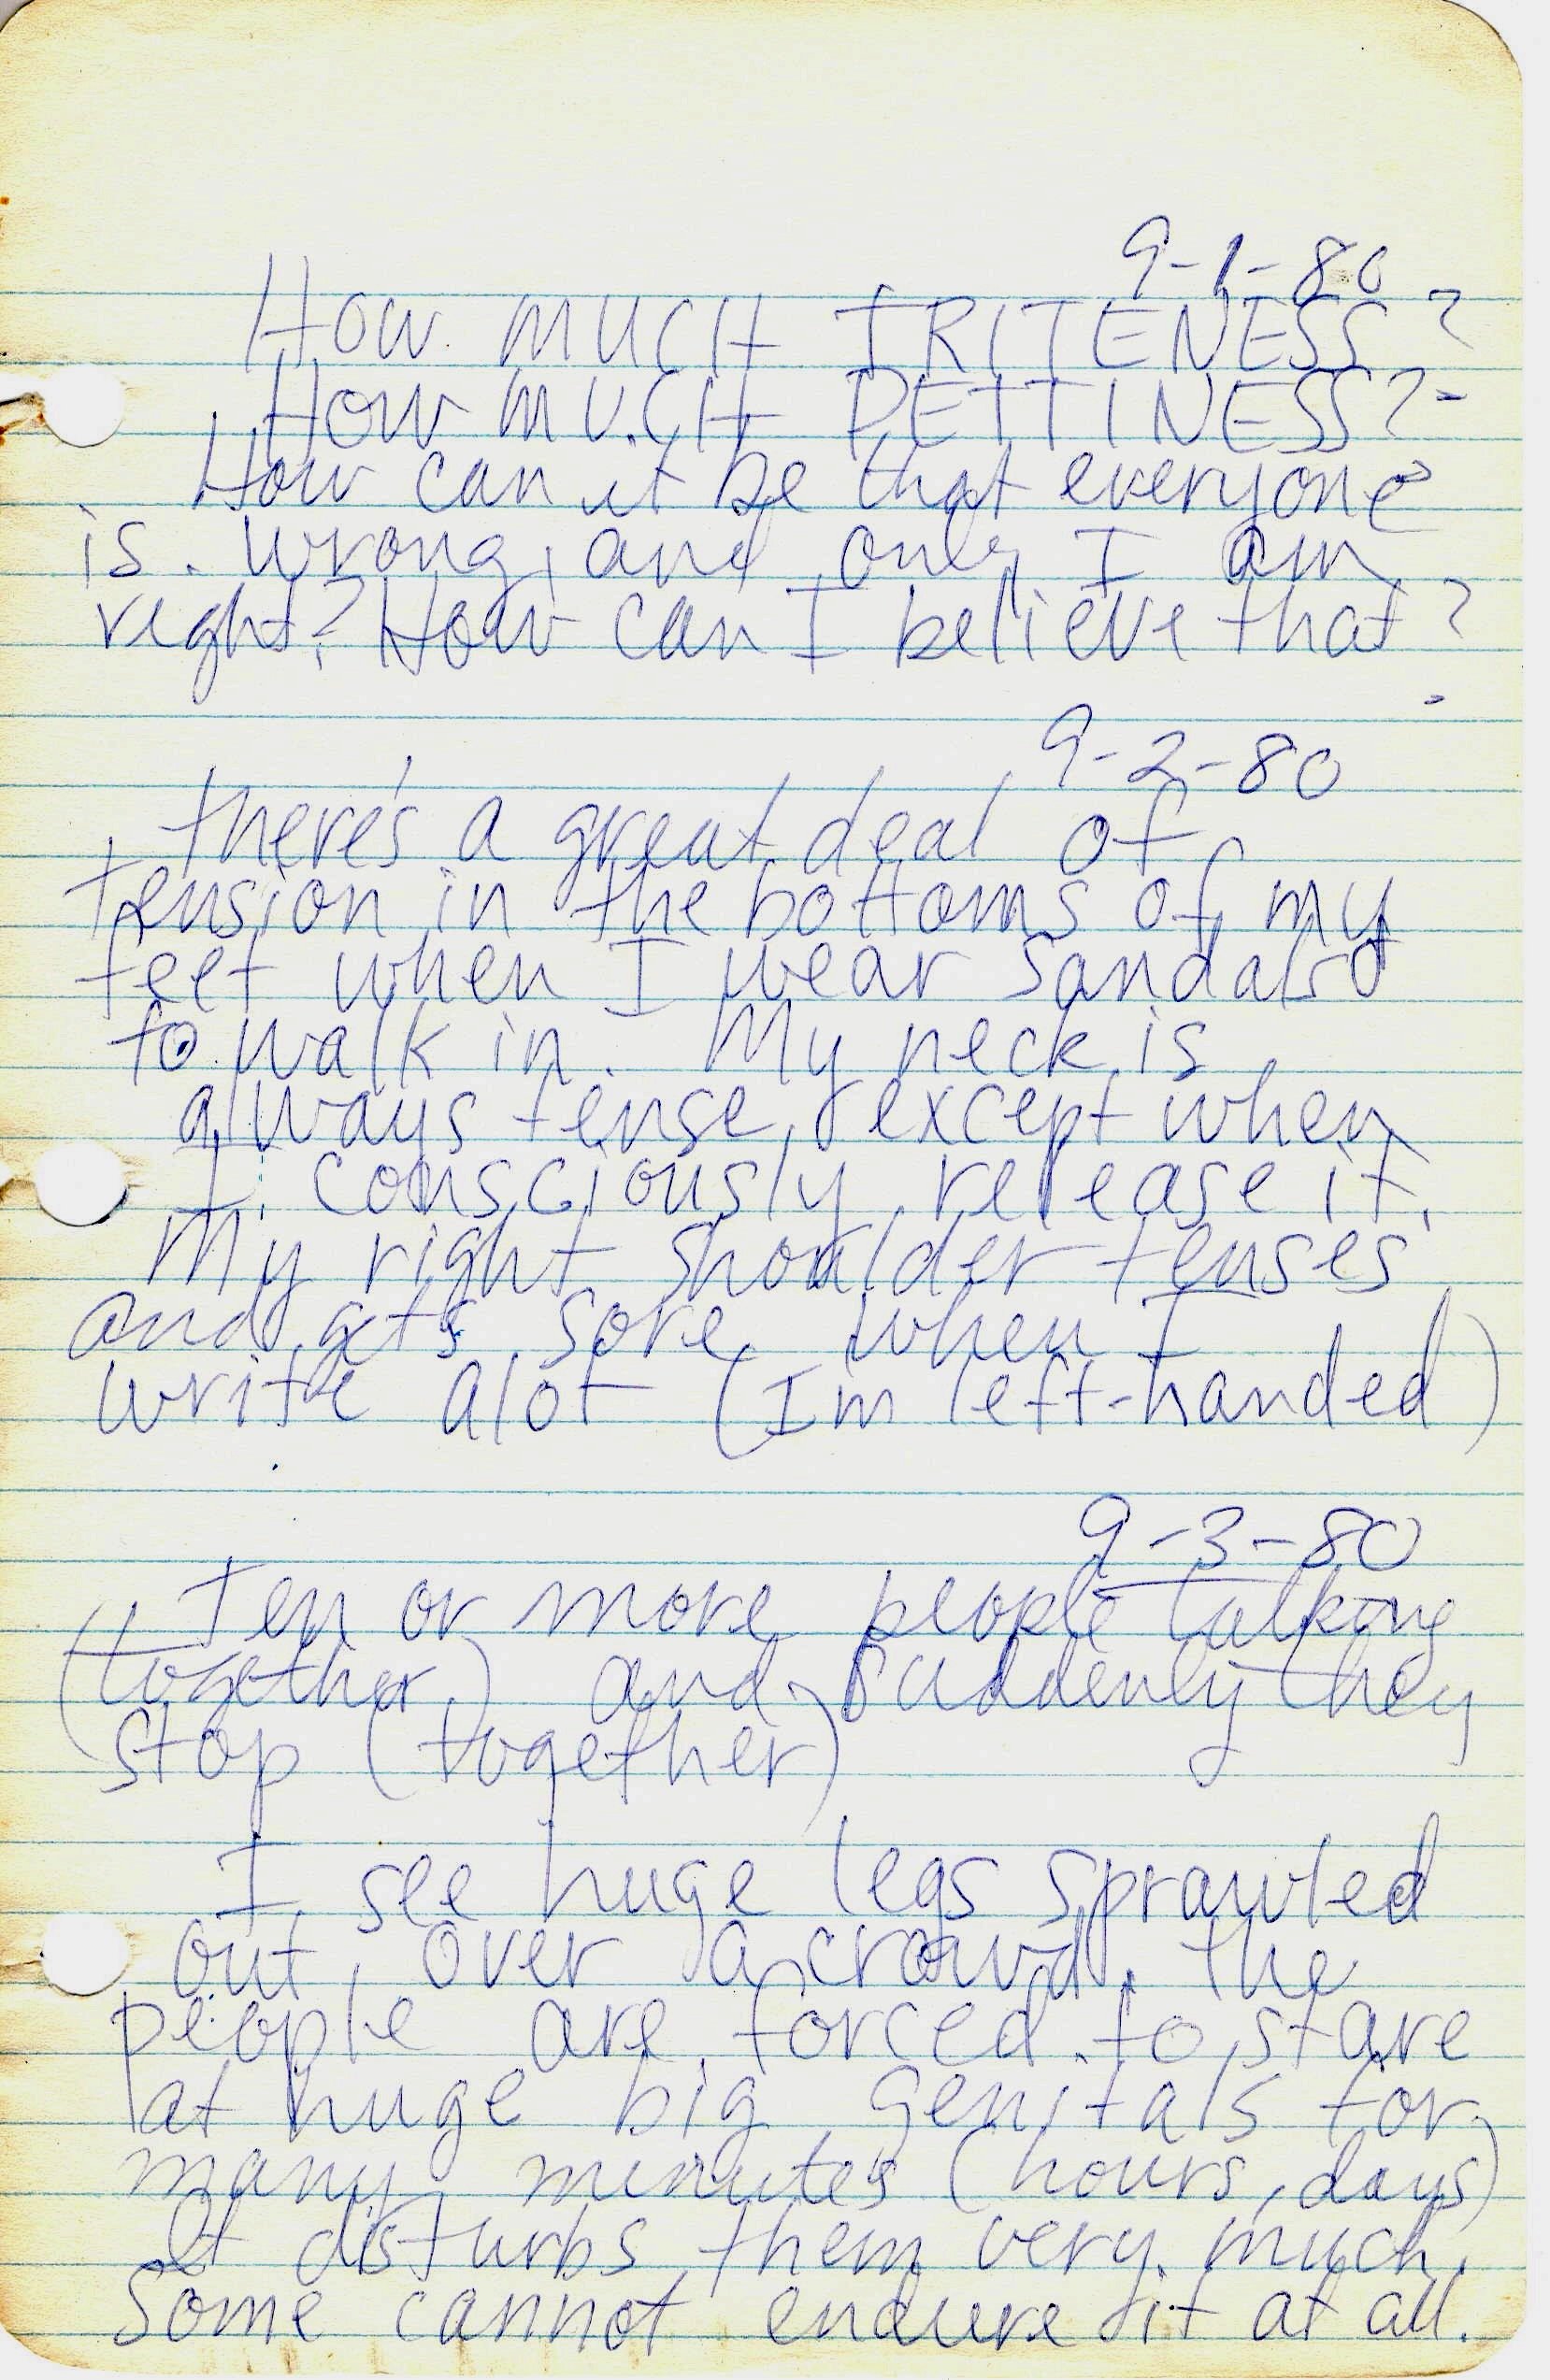 9-1-80
HOW MUCH TRITENESS?
HOW MUCH PETTINESS?
How can it be that everyone
is wrong, and only I am
right? How can I believe that?
9-2-80
there's a great deal of
tension in the bottoms of my
feet when I wear sandals
to walk in. My neck is
always tense, except when
I consciously release it.
My right shoulder tenses
and gets sore when I
write alot (Im left-handed)
9-3-80
Ten or more people talking
(together) and suddenly they
stop (together)
I see huge legs sprawled
out, over a crowd. the
people are forced to stare
at huge big genitals for
many minutes (hours, days)
It disturbs them very much.
Some cannot endure it at all.